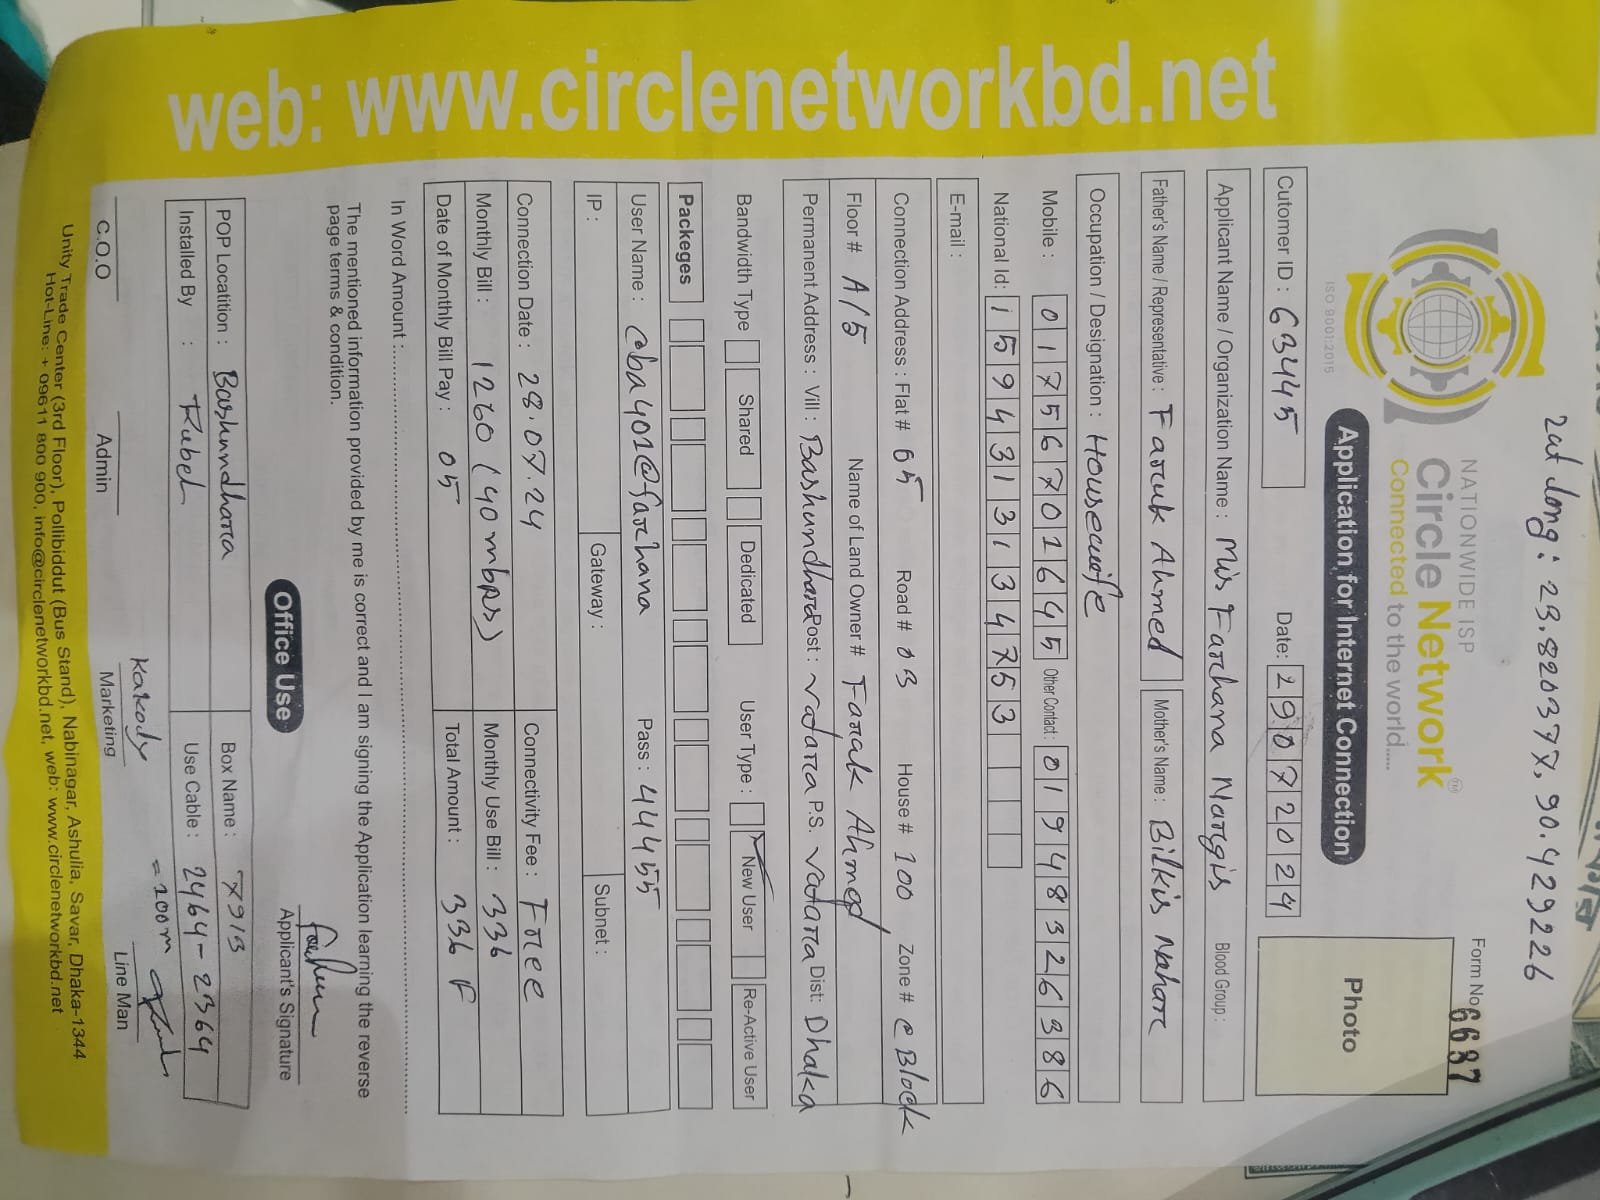 Lat Long: 23.820377, 90.429226
NATIONWIDE ISP
Circle Network TM
Connected to the world.....
ISO 9001:2015
Form No 6637
Application for Internet Connection
Photo
Cutomer ID : 63445 Date: 29072024
Applicant Name / Organization Name : Mis Farhana Nargis Blood Group :
Father's Name / Representative : Faruk Ahmed Mother's Name : Bilkis Nahar
Occupation / Designation : Housewife
Mobile : 01756701645 Other Contact : 01948326386
National Id: 1594313134753
E-mail :
Connection Address : Flat # 65 Road # 03 House # 100 Zone # C Block
Floor # A/5 Name of Land Owner # Faruk Ahmed
Permanent Address : Vill : Bashundhara Post : Vatara P.S. Vatara Dist: Dhaka
Bandwidth Type Shared Dedicated User Type : New User Re-Active User
Packeges
User Name : cba401@farhana Pass : 44455
IP : Gateway : Subnet :
Connection Date : 28.07.24 Connectivity Fee : Free
Monthly Bill : 1260 (40 mbps) Monthly Use Bill : 336
Date of Monthly Bill Pay : 05 Total Amount : 336
In Word Amount :
The mentioned information provided by me is correct and I am signing the Application learning the reverse
page terms & condition.
Office Use
Applicant's Signature
POP Locatition : Bashundhara Box Name : 7913
Installed By : Rubel Use Cable : 2464-2364
= 100m
C.O.O Admin Marketing Line Man
Unity Trade Center (3rd Floor), Pollibiddut (Bus Stand), Nabinagar, Ashulia, Savar, Dhaka-1344
Hot-Line: + 09611 800 900, info@circlenetworkbd.net, web: www.circlenetworkbd.net
web: www.circlenetworkbd.net